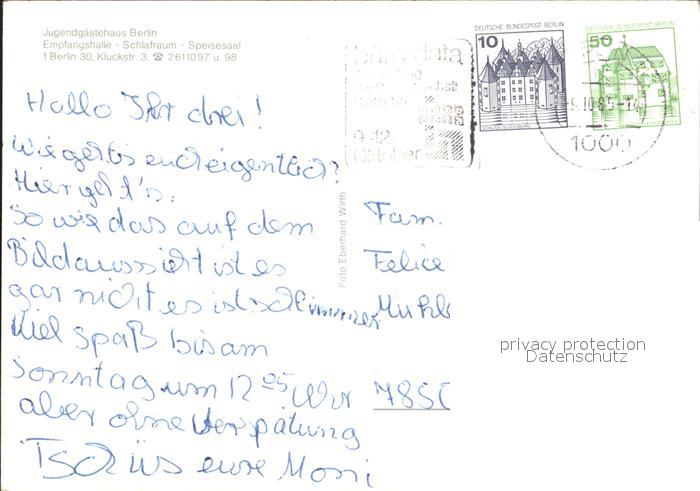 Jugendgästehaus Berlin
Empfangshalle - Schlafraum - Speisesaal
1 Berlin 30, Kluckstr. 3, ☎ 2611097 u. 98
DEUTSCHE BUNDESPOST BERLIN
10
DEUTSCHE BUNDESPOST BERLIN
50
büro-data
9-12
Oktober
1000
Hallo Ihr drei!
Wie geht's euch eigentlich?
Hier geht's.
So wie das auf dem
Bild aussieht ist es
gar nicht es ist schlimmer
Viel Spaß bis am
Sonntag um 12 05 Uhr
aber ohne Verspätung
Tschüs eure Moni
Foto Eberhard Wirth
Fam.
Felice
Mühl
785
privacy protection
Datenschutz